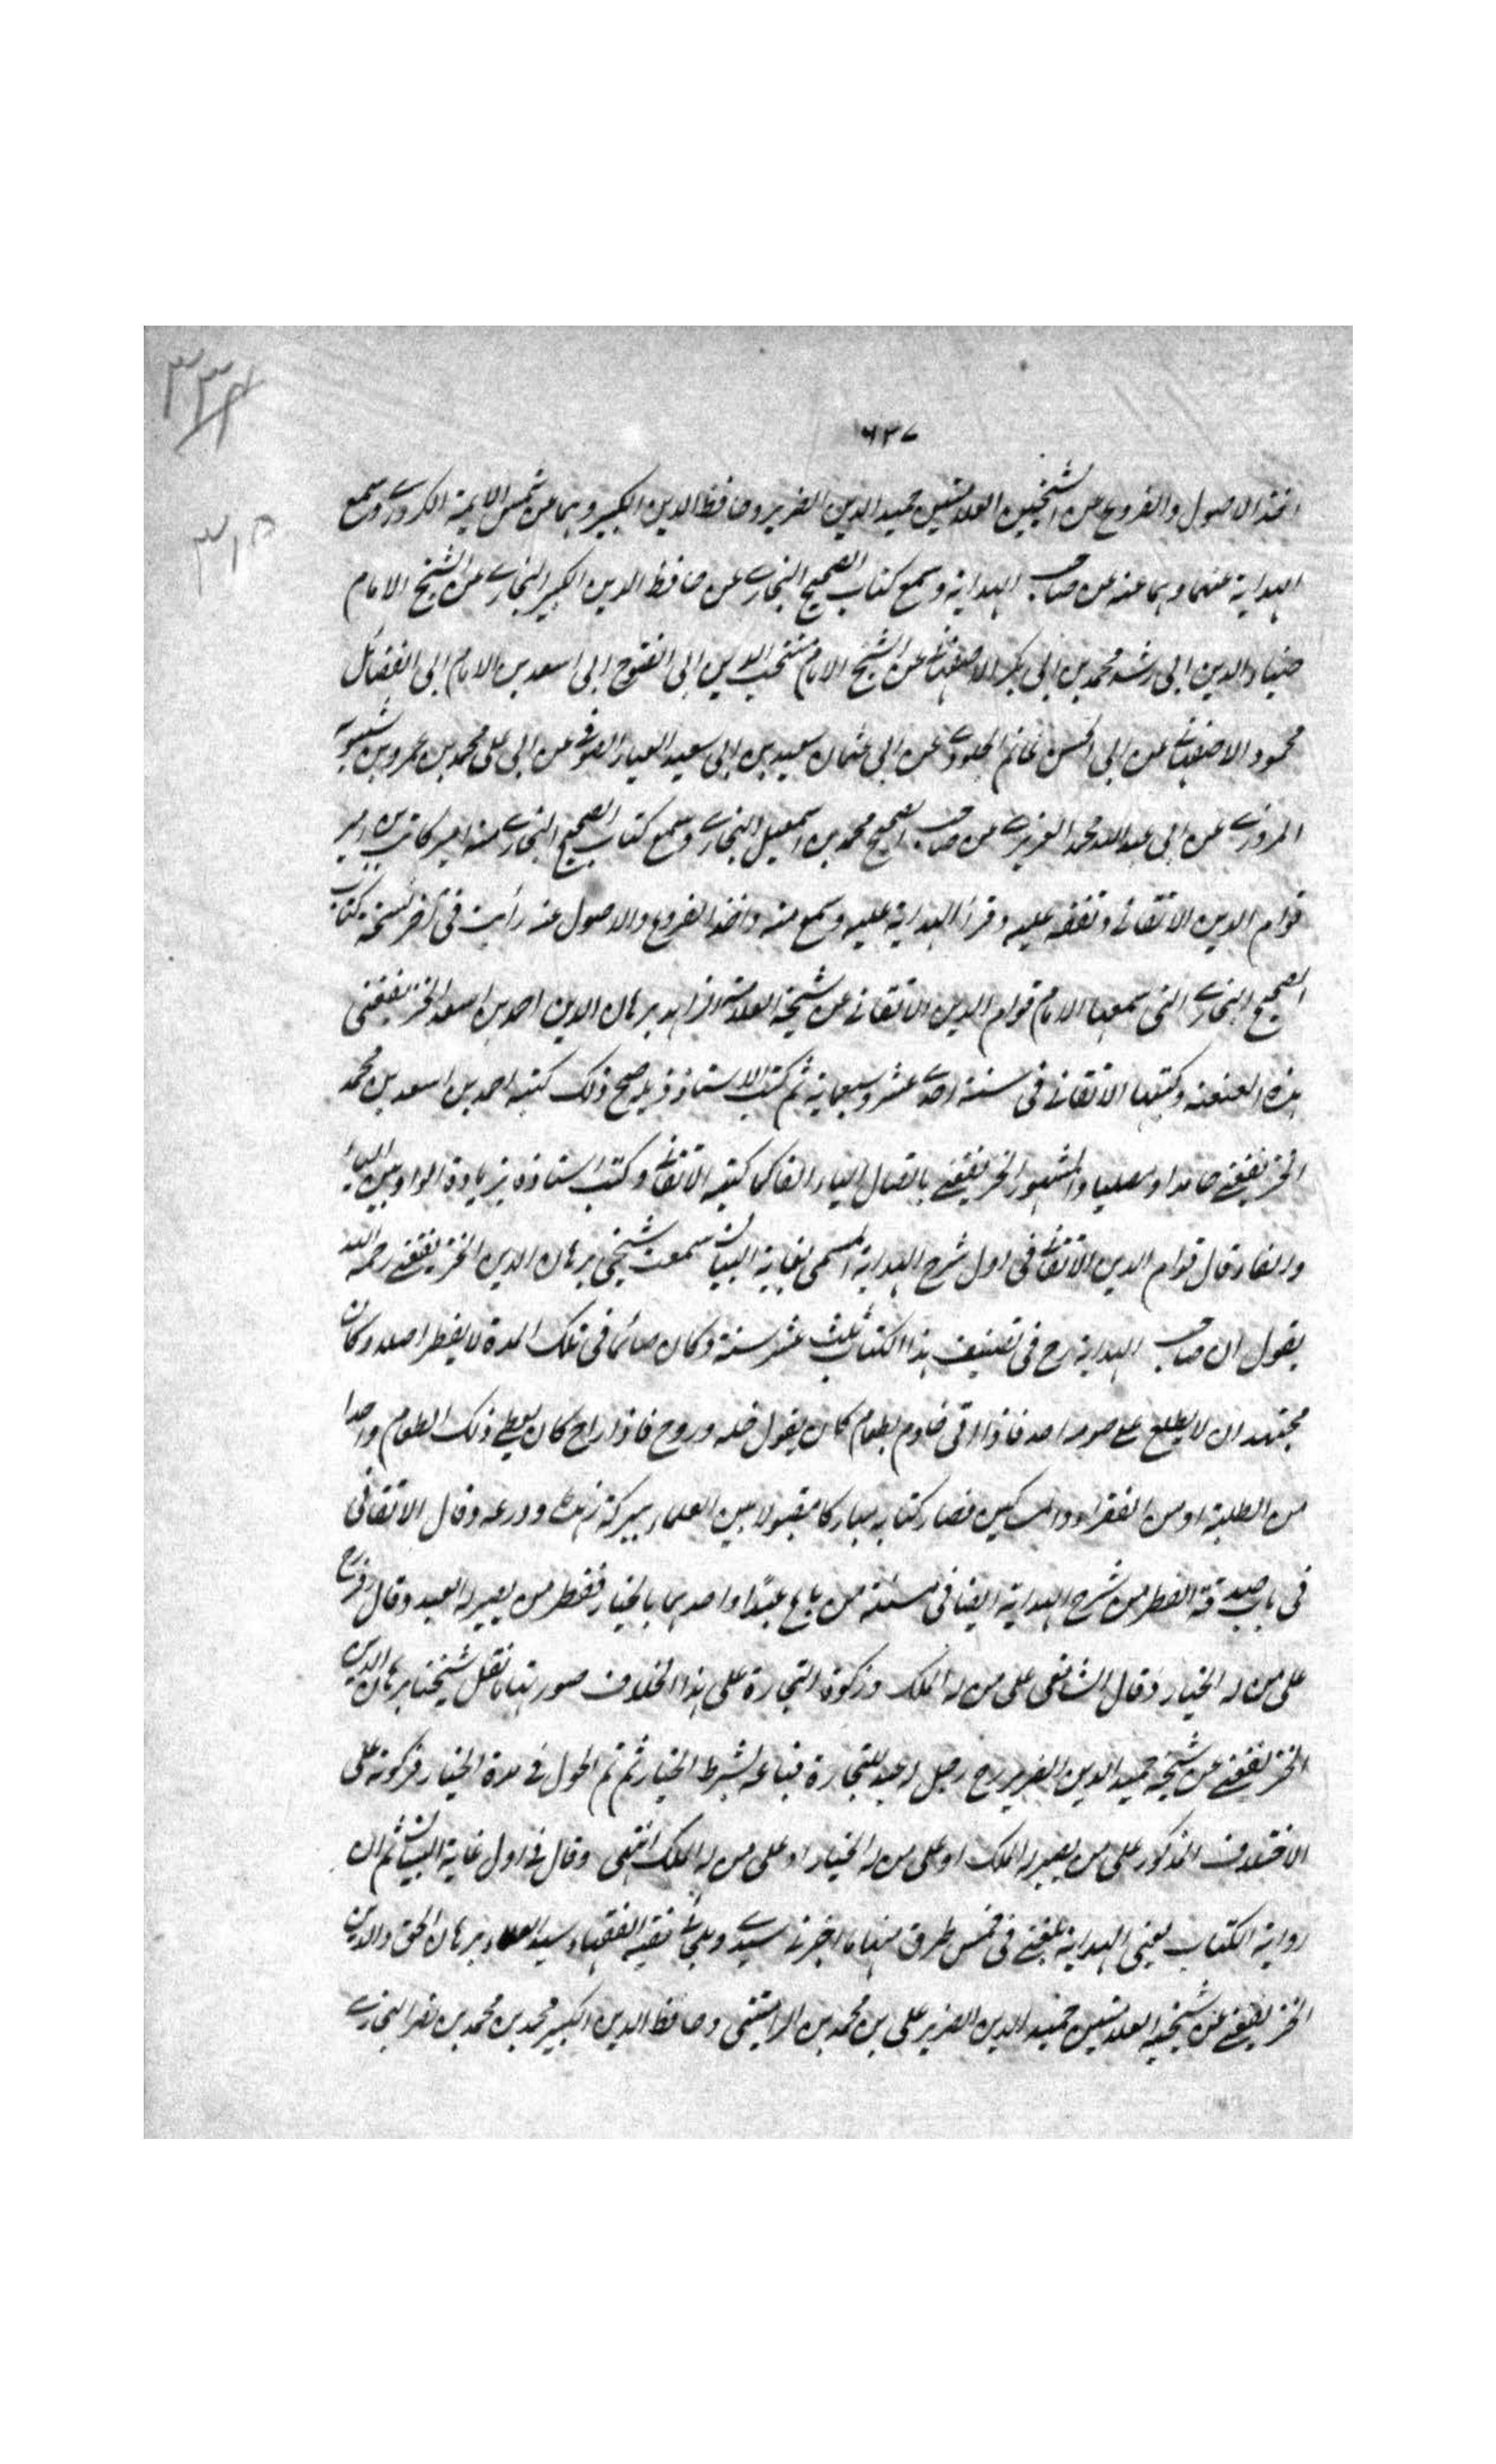 ٦٣٧
٣٣٤
٣١٥
اخذ الاصول والفروع عن الشيخين العلامتين حميد الدين الضرير وحافظ الدين الكبير وهما عن شمس الايمة الكردرى وسمع
الهداية عنهما وهما عنه عن صاحب الهداية وسمع كتاب الصحيح البخارى عن حافظ الدين الكبير البخارى عن الشيخ الامام
ضياء الدين ابى رشد محمد بن ابى بكر الاصفهانى عن الشيخ الامام منتخب الدين ابى الفتوح ابى اسعد بن الامام ابى الفضائل
محمود الاصفهانى عن ابى الحسن غانم الجلودى عن ابى عثمان سعيد بن ابى سعيد العيار الصوفى عن ابى على محمد بن عمرو بن شبويه
المروزى عن ابى عبد الله محمد الفربرى عن صاحب الصحيح محمد بن اسمعيل البخارى وسمع كتاب الصحيح البخارى منه امير كاتب بن امير
قوام الدين الاتقانى وتفقه عليه وقرأ الهداية عليه وسمع منه واخذ الفروع والاصول عنه رأيت فى آخر نسخة كتاب
الصحيح البخارى التى سمعها الامام قوام الدين الاتقانى عن شيخه العلامة الزاهد برهان الدين احمد بن اسعد الخريفغنى
هذه العنعنة وكتبها الاتقانى فى سنة احدى عشر وسبعماية ثم كتب الاستاذ صح ذلك كتبه احمد بن اسعد بن محمد
الخريفغنى حامدا ومصليا والمشهور الخريفغنى باتصال الياء الفا كما كتبه الاتقانى وكتب استاذه بزيادة الواو بين الياء
والفا وقال قوام الدين الاتقانى فى اول شرح الهداية المسمى بغاية البيان سمعت شيخى برهان الدين الخريفغنى رحمه الله
يقول ان صاحب الهداية رح فى تصنيف هذا الكتاب ثلث عشر سنة وكان صائما فى تلك المدة لا يفطر اصلا وكان
مجتهد ان لا يطلع على صومه احد فاذا اتى خادم بطعام كان يقول خله وروح فاذا راح كان يعطى ذلك الطعام واحدا
من الطلبة او من الفقراء والمساكين فصار كتابه مباركا مقبولا بين العلماء ببركة زهده وورعه وقال الاتقانى
فى باب صدقة الفطر من شرح الهداية ايضا فى مسئلة من باع عبدا واحدهما بالخيار ففطر من يصير له العبد وقال زفر رح
على من له الخيار وقال الشافعى على من له الملك وزكوة التجارة على هذا الخلاف صورتها ما نقل شيخنا برهان الدين
الخريفغنى عن شيخه حميد الدين الضرير رح رجل له عبد للتجارة فباعه بشرط الخيار ثم تم الحول فى مدة الخيار فزكوته على
الاختلاف المذكور على من يصير له الملك او على من له الخيار او على من له الملك انتهى وقال فى اول غاية البيان ثم ان
رواية الكتاب يعنى الهداية بلغنى فى خمس طرق منها ما اخبرنى سيدى فقيه الفقهاء سيد العلماء برهان الحق والدين
الخريفغنى عن شيخيه العلامتين حميد الدين الضرير على بن محمد بن الرامشى وحافظ الدين الكبير محمد بن محمد بن نصر البخارى